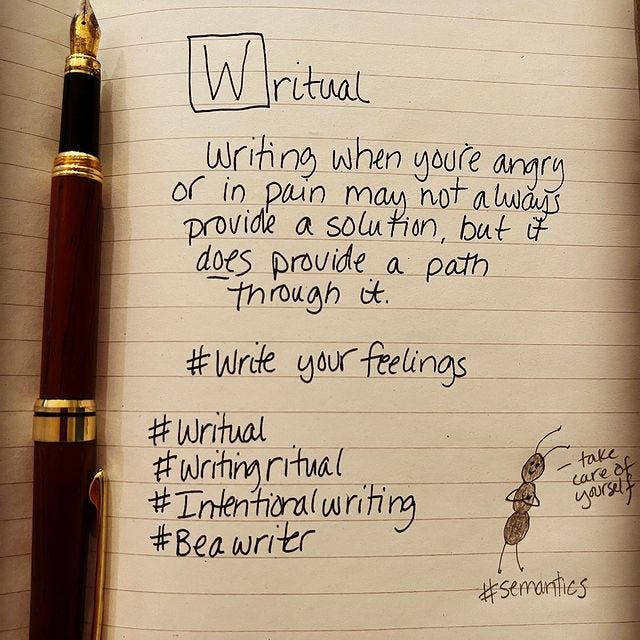 Writual
Writing when you're angry
or in pain may not always
provide a solution, but it
does provide a path
through it.
#Write your feelings
#Writual
#Writingritual
#Intentionalwriting
#Beawriter
take
care of
yourself
#semantics